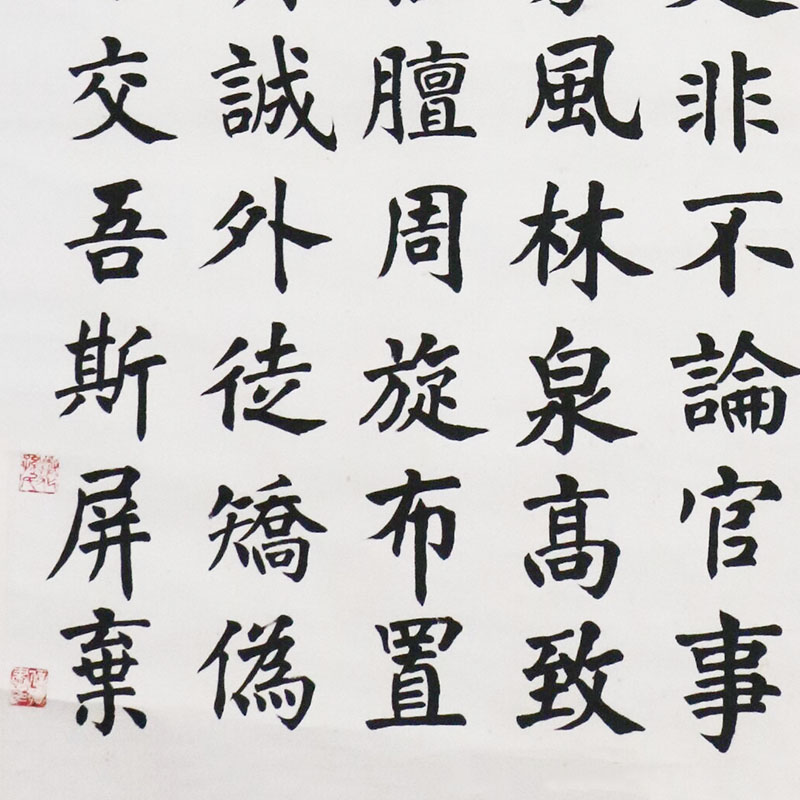 非不論官事
風林泉髙致
膻周旋布置
誠外徒矯偽
交吾斯屏棄